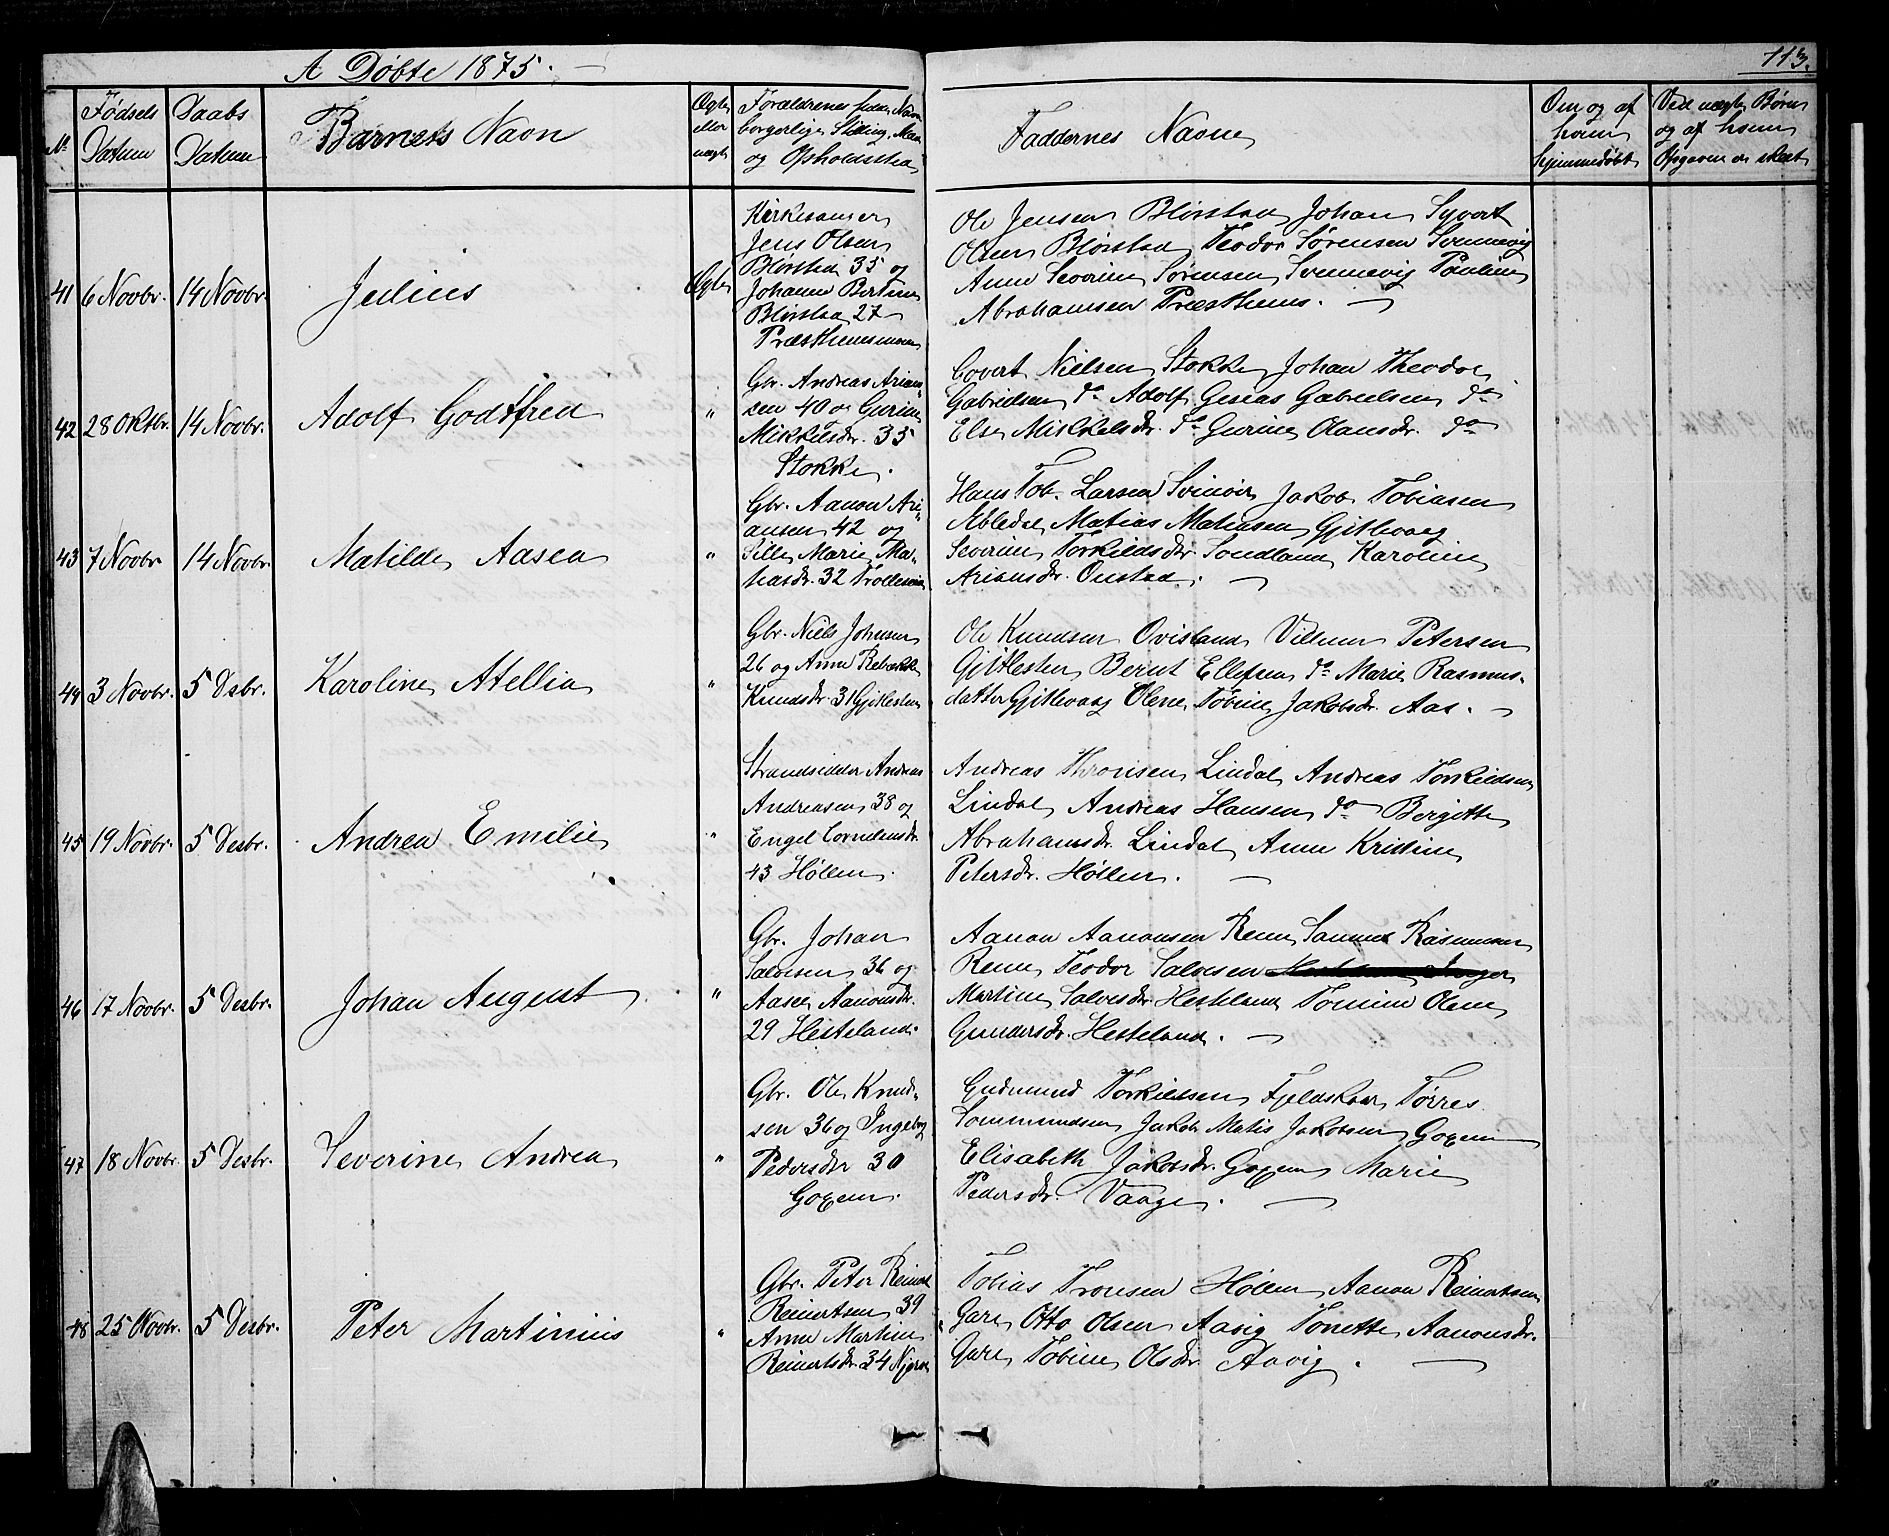 A Døbte 1875.
113.
No
Fødsels Datum
Daabs Datum
Barnets Navn
Ægte eller uægte
Forældrenes fulde Navn
borgerlige Stilling,
og Opholdssted
Faddernes Navne
Om og af hvem hjemmedøbt
Ved uægte Børn og af hvem Opgaven er skeet
41 6 Novbr. 14 Novbr. Julius Ægte
Kirkesanger
Jens Olsen
Bløistad 35 og
Johanne Bertine
Bløistad 27
Ole Jensen Bløistad Johan Syvert
Olsen Bløistad Teodor Sørensen Svennevig
Anne Severine Sørensen Svennevig Pauline
Abrahamsen Præsthuus. —
42 28 Oktbr. 14 Novbr. Adolf Godtfred "
Gbr. Andreas Arian-
sen 40 og Gurine
Mikkelsdr. 35
Stokke.
Covert Nielsen Stokke Johan Theodor
Gabrielsen do Adolf Gesias Gabrielsen do
Else Mikkelsdr. do Gurine Olausdr. do
43 7 Novbr 14 Novbr Matilde Aasea "
Gbr. Aanon Ari-
ansen 42 og
Sille Marie Ma-
tiasdr. 32
Hans Tob. Larsen Svinøir Jakob Tobiasen
Abledal Matias Matiasen Gjitlevaag
Severine Torkildsdr Sondland Karoline
Ariansdr. Onstad. —
44 3 Novbr. 5 Desbr. Karoline Atellia "
Gbr. Niels Johnsen
26 og Anne Rebekke
Knudsdr. 31 Gjitlesten
Ole Knudsen Ovisland Villum Petersen
Gjitlesten Bernt Ellefsen do Marie Rasmus-
datter Gjitlevaag Olene Tobine Jakobsdr. Aas. —
45 19 Novbr. 5 Desbr. Andrea Emilie "
Strandsidder Andreas
Andreasen 38 og
Engel Corneliusdr.
43 Høllen.
Andreas Thronsen Lindal Andreas Torkildsen
Lindal Andreas Hansen do Bergitte
Abrahamsdr. Lindal Anne Kristine
Petersdr. Høllen. —
46 17 Novbr. 5 Desbr. Johan August. "
Gbr. Johan
Salvesen 36 og
Aasel Aanonsdr.
29 Hesteland.
Aanon Aanonsen Renn Samuel Rasmussen
Renn Teodor Salvesen
Martine Salvesdr Hesteland Tomine Olene
Gundersdr. Hesteland. —
47 18 Novbr. 5 Desbr. Severine Andrea "
Gbr. Ole Knud-
sen 36 og Ingeborg
Pedersdr 30
Goxem.
Gudmund Torkildsen Fjeldskaar Tørres
Sommundsen Jakob Matis Jakobsen Goxem
Elisabeth Jakobsdr. Goxem Marie
Pedersdr. Vaage. —
48 25 Novbr. 5 Desbr. Peter Martinius "
Gbr. Peter Reinert
Reinertsen 39
Anne Martine
Reinertsdr. 34
Tobias Tronsen Høllen Aanon Reinertsen
Gare Otto Olsen Aavig Tonette Aanonsdr.
Gare Tobine Olsdr Aavig. —